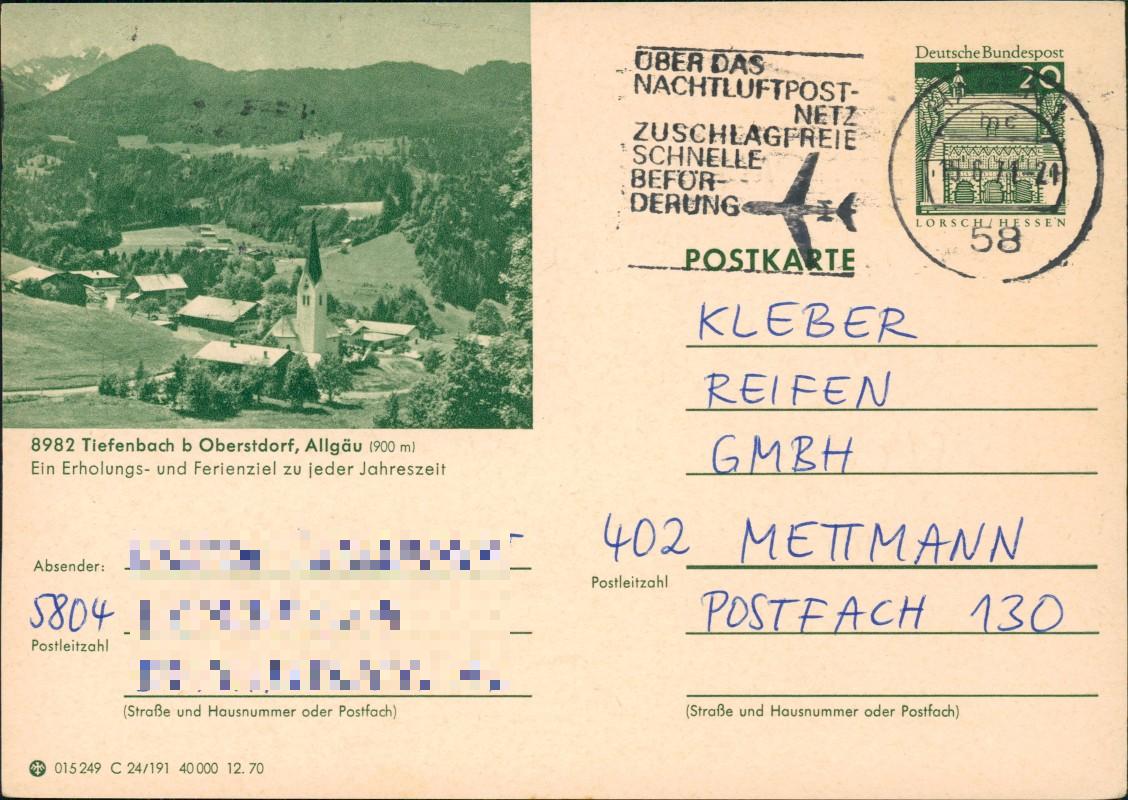 ÜBER DAS
NACHTLUFTPOST-
NETZ
ZUSCHLAGFREIE
SCHNELLE
BEFÖR-
DERUNG
Deutsche Bundespost
20
mc
-21
LORSCH/HESSEN
58
POSTKARTE
KLEBER
REIFEN
GMBH
402 METTMANN
Postleitzahl
POSTFACH 130
(Straße und Hausnummer oder Postfach)
8982 Tiefenbach b Oberstdorf, Allgäu (900 m)
Ein Erholungs- und Ferienziel zu jeder Jahreszeit
Absender:
5804
Postleitzahl
(Straße und Hausnummer oder Postfach)
015249 C 24/191 40000 12.70